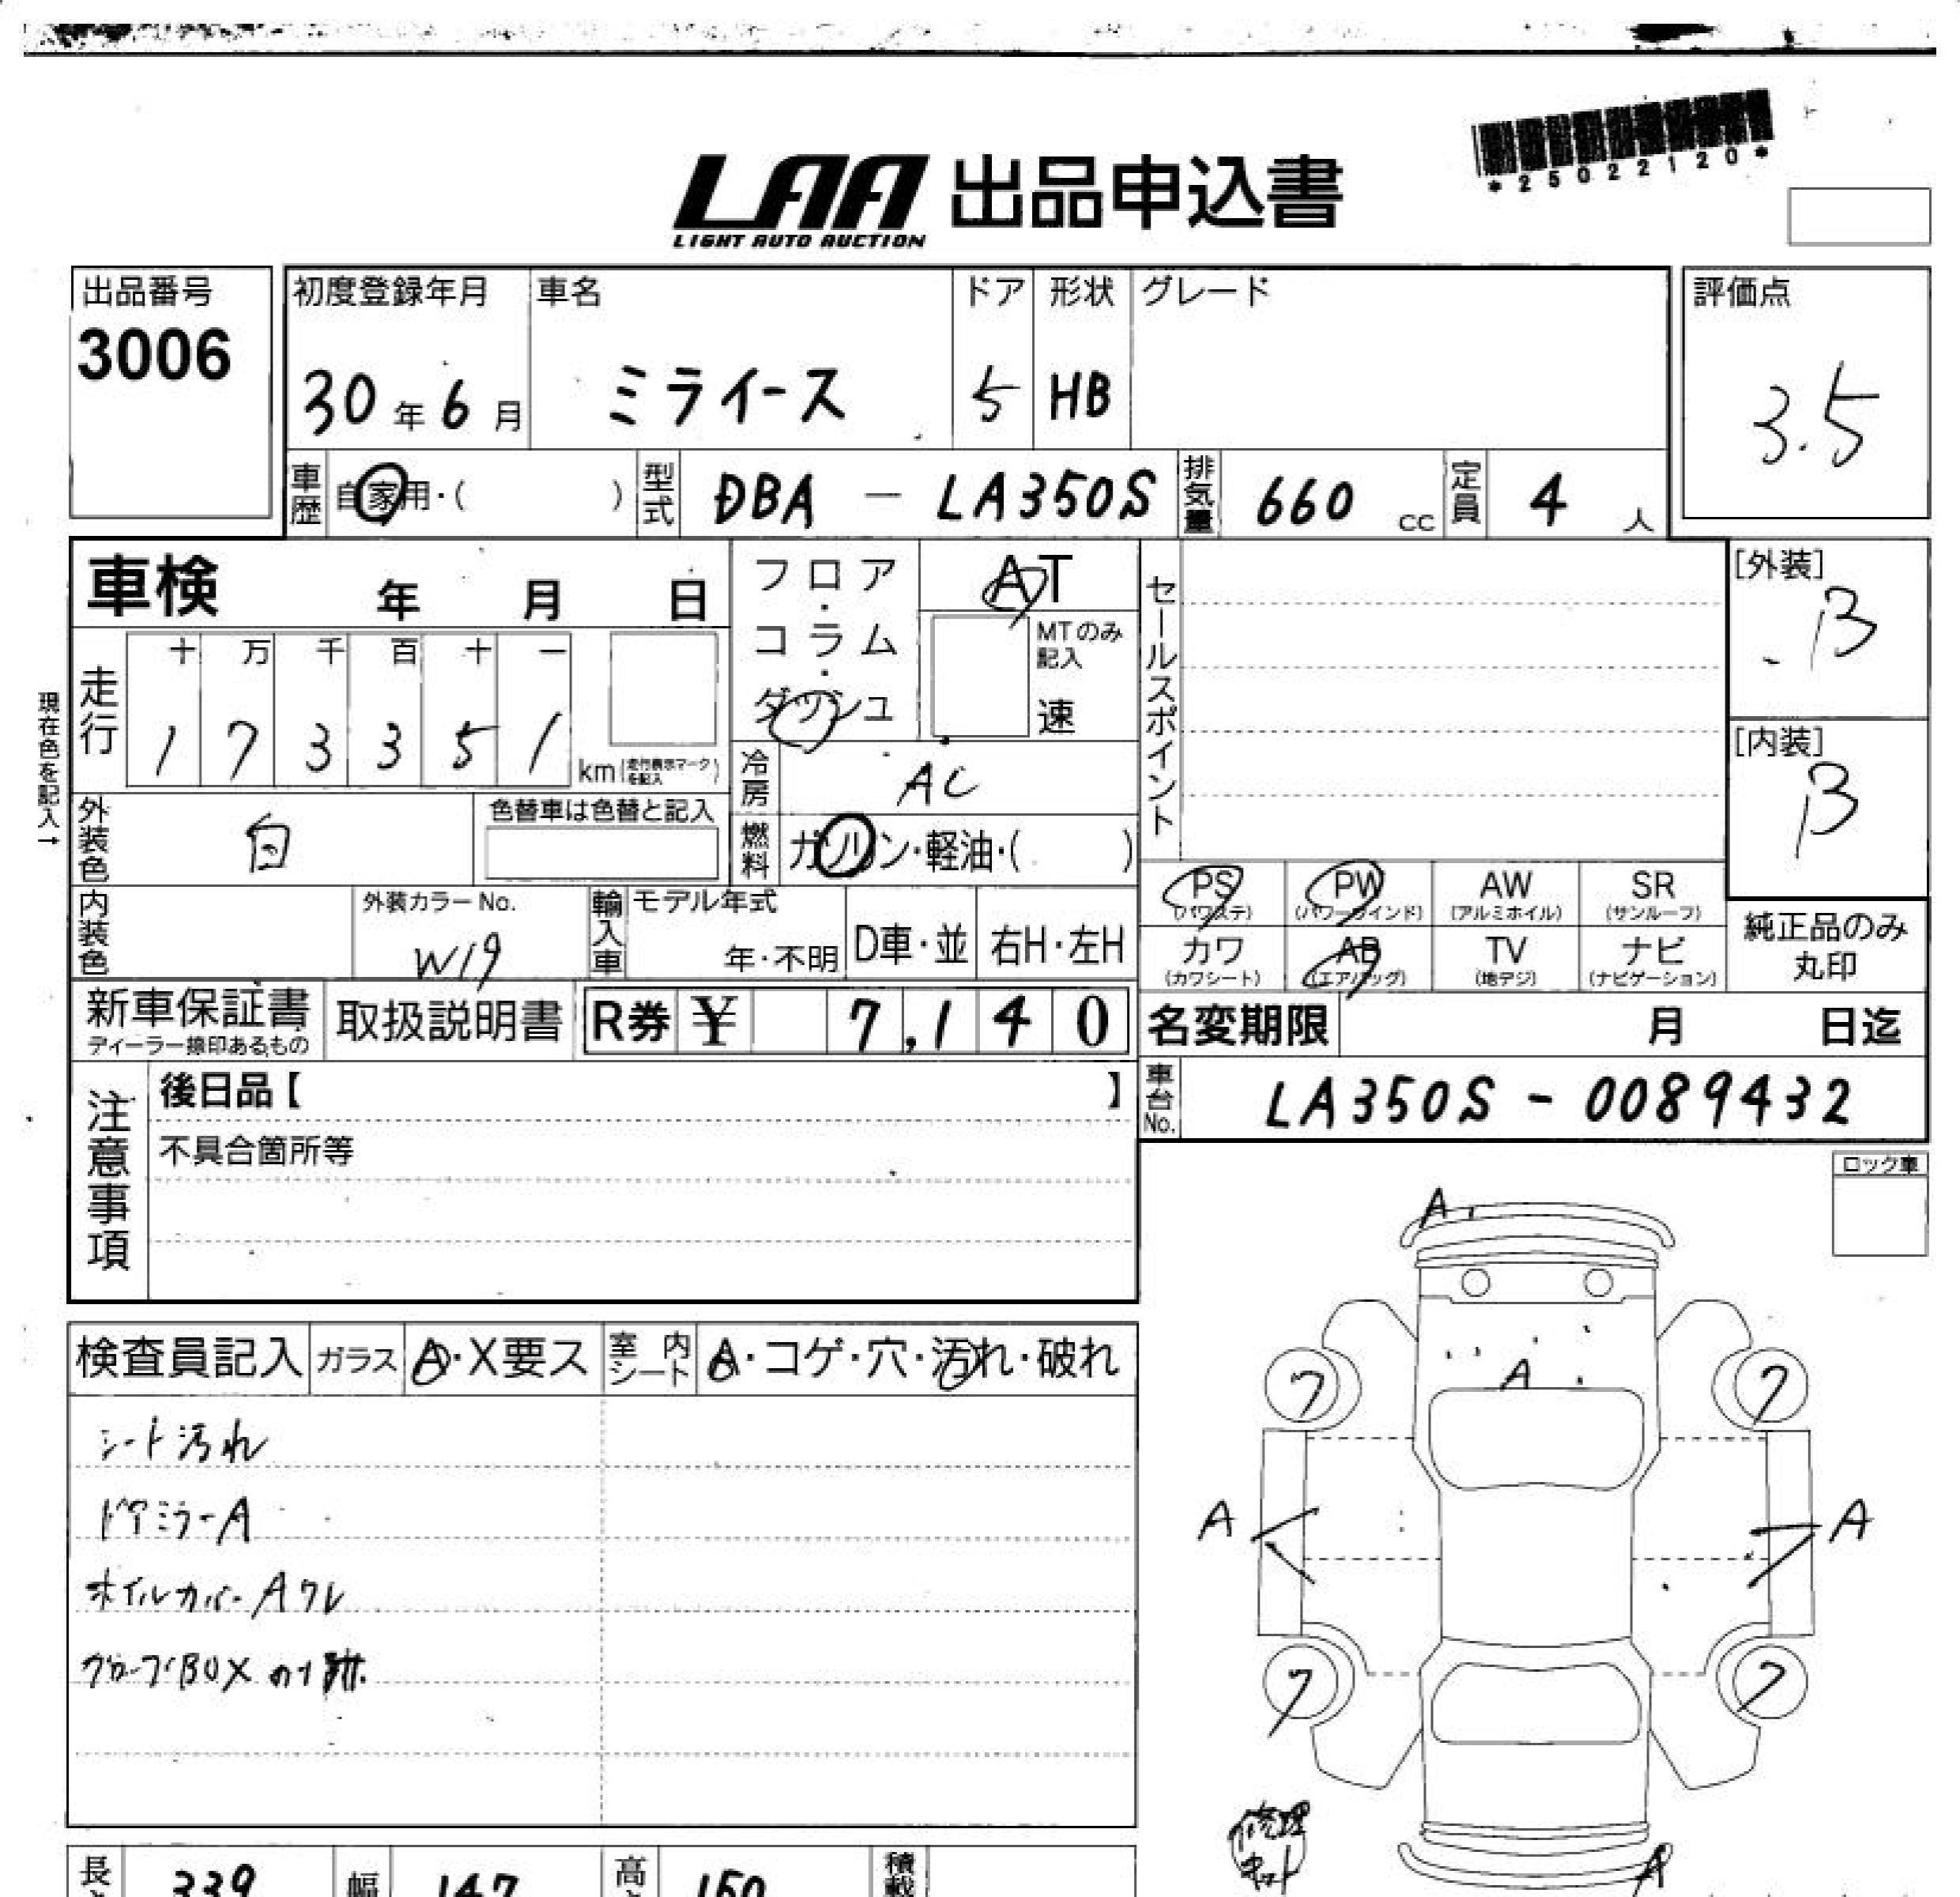 *25022120*
LAA 出品申込書
LIGHT AUTO AUCTION
出品番号
3006
初度登録年月
30年6月
車名
ミライース
ドア
5
形状
HB
グレード
評価点
3.5
車歴 自家用・( )
型式 DBA - LA350S
排気量 660 cc
定員 4 人
車検 年 月 日
フロア・コラム・ダッシュ
AT
MTのみ記入
速
セールスポイント
[外装]
B
[内装]
B
現在色を記入→
走行
十 万 千 百 十 一
1 7 3 3 5 1 km (走行表示マークを記入)
冷房 AC
外装色 白
色替車は色替と記入
燃料 ガソリン・軽油・( )
内装色
外装カラーNo.
W19
輸入車
モデル年式
年・不明
D車・並
右H・左H
PS (パワステ)
PW (パワーウインド)
AW (アルミホイル)
SR (サンルーフ)
カワ (カワシート)
AB (エアバッグ)
TV (地デジ)
ナビ (ナビゲーション)
純正品のみ
丸印
新車保証書
ディーラー捺印あるもの
取扱説明書
R券 ¥ 7,140
名変期限 月 日迄
車台No. LA350S - 0089432
注意事項
後日品【 】
不具合箇所等
ロック車
検査員記入
ガラス A・X要ス
室内シート A・コゲ・穴・汚れ・破れ
シート汚れ
ドアミラーA
ホイルカバーAワレ
グローブBOX 跡
A
A
7
7
A
A
7
7
修理キット
A
長 339
幅 147
高 150
積載